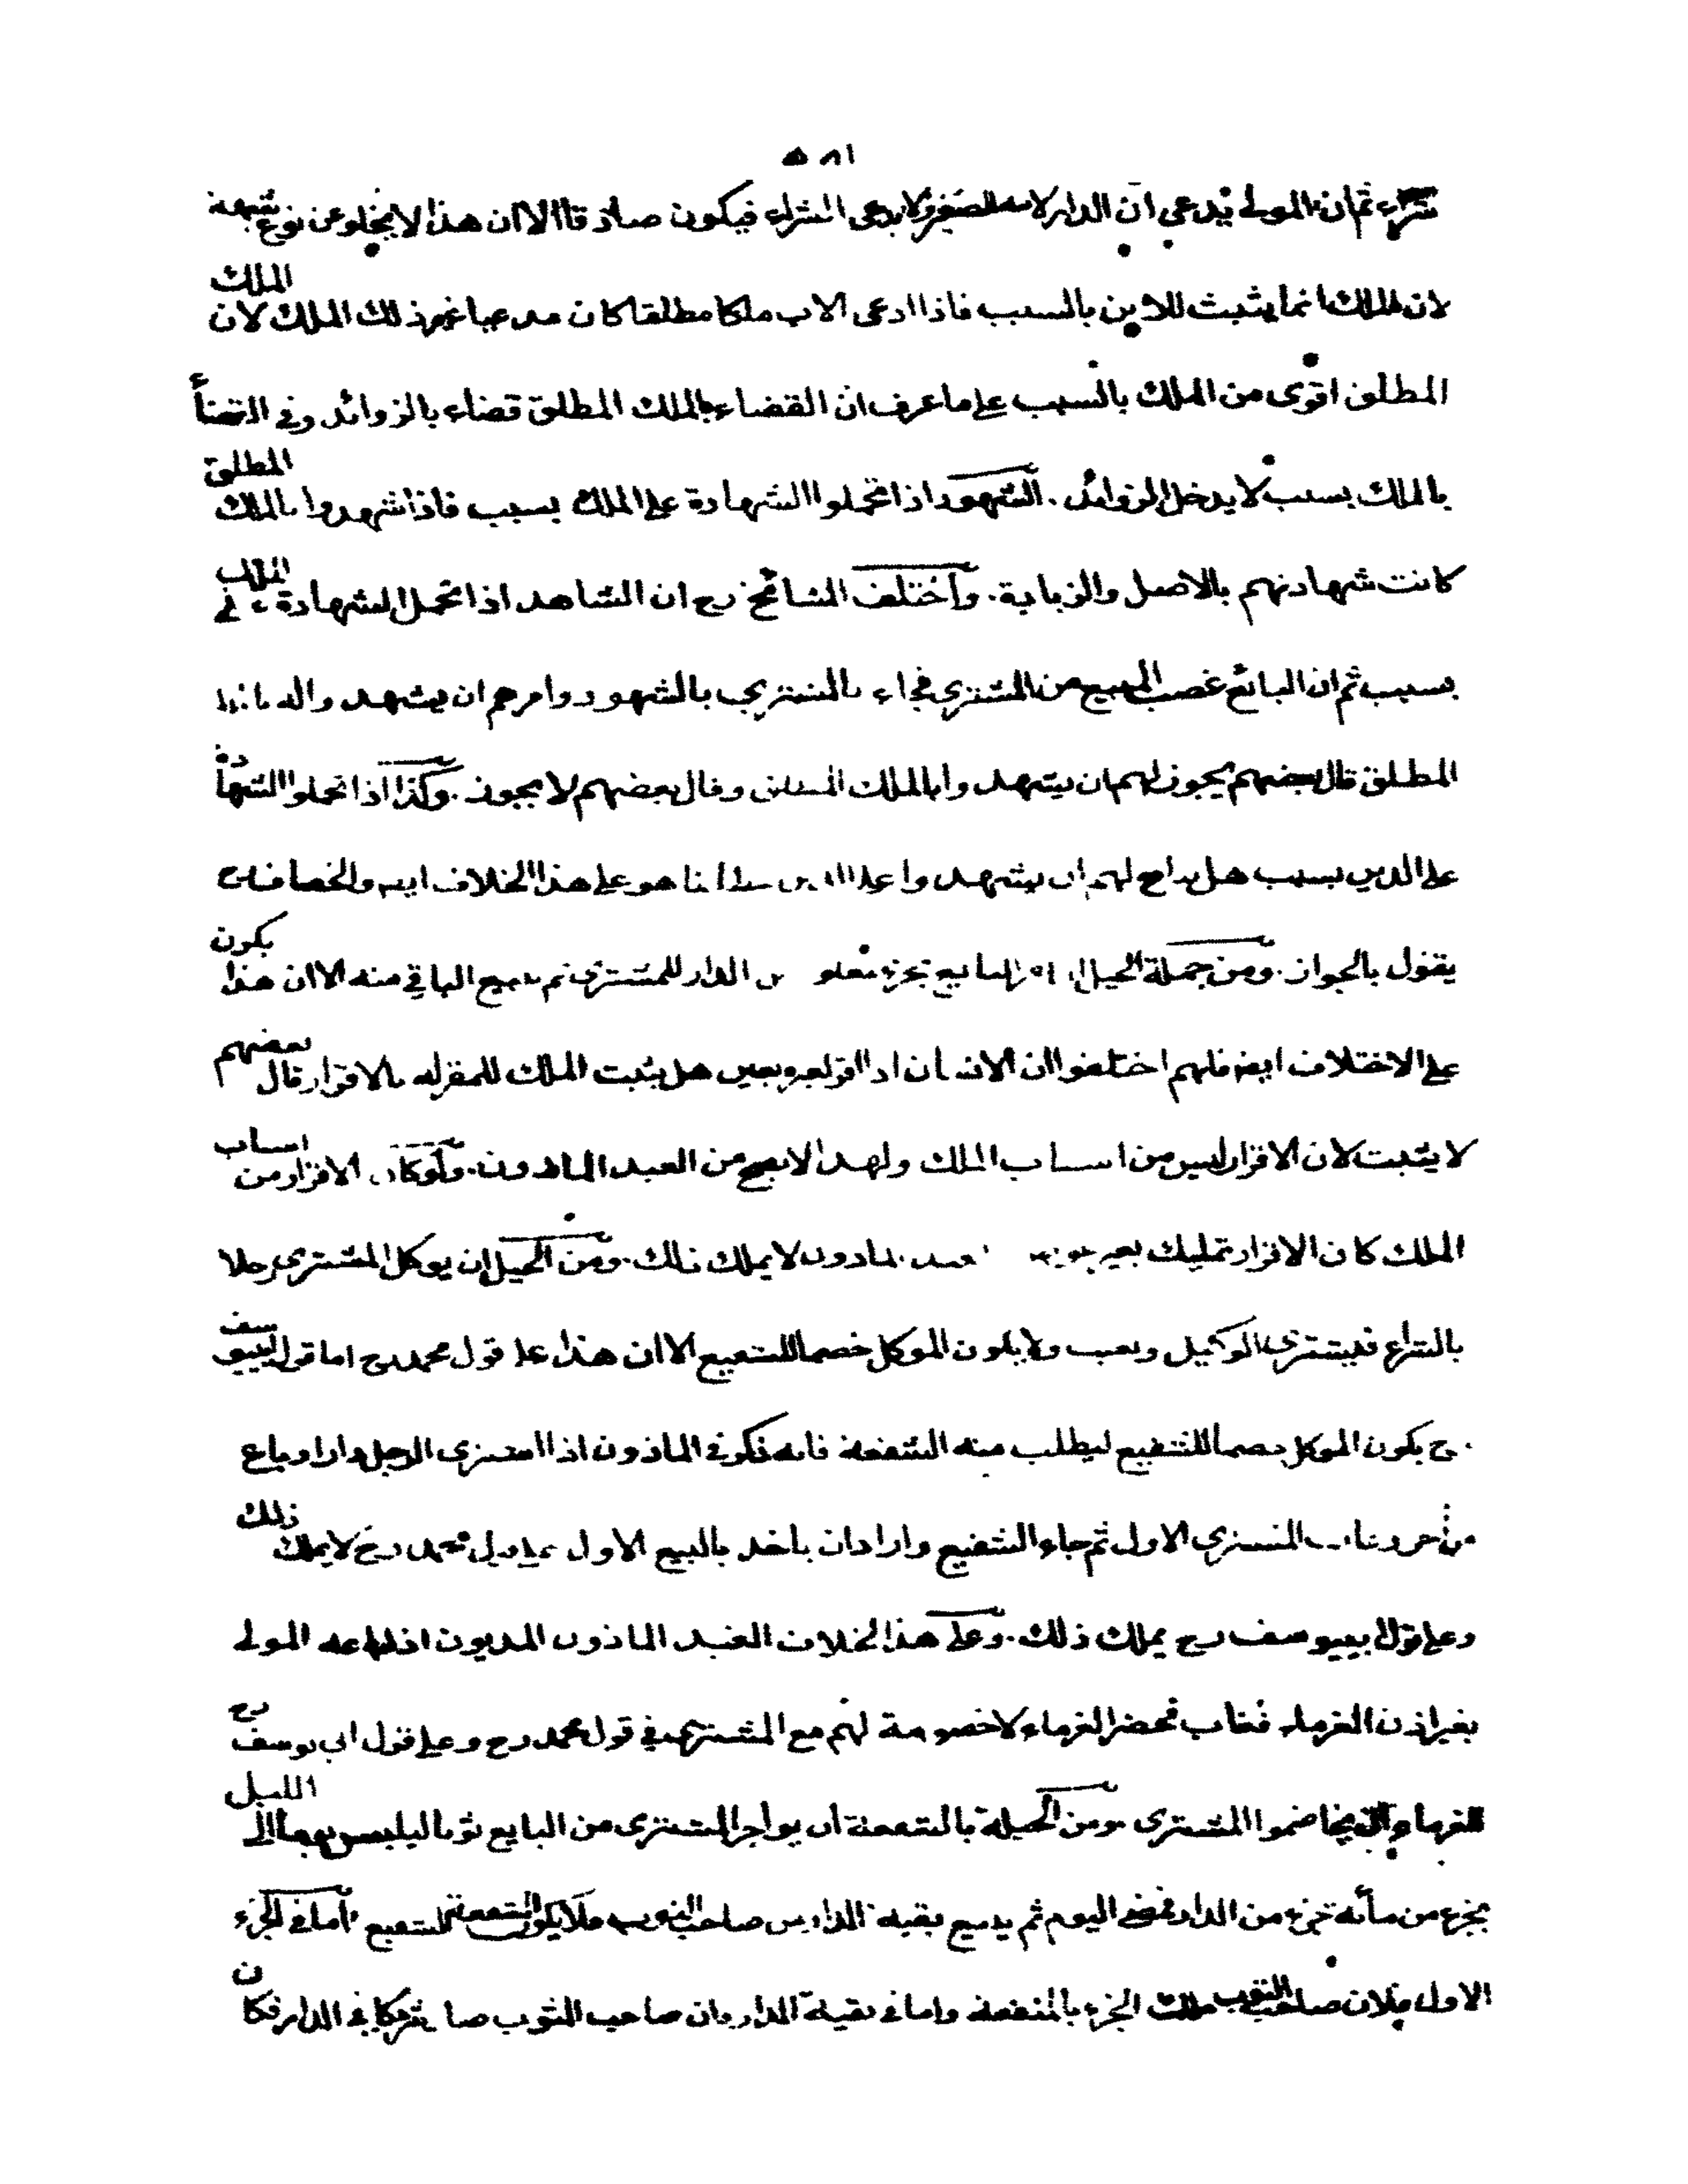 ٥٨١
شراء ثم ان المولى يدعى ان الدار لابنه الصغير ولا يدعى الشراء فيكون صادقا الا ان هذا لا يخلو عن نوع شبهة
لان الملك انما يثبت للابن بالسبب فاذا ادعى الاب ملكا مطلقا كان مدعيا غير ذلك الملك لان الملك
المطلق اقوى من الملك بالسبب على ما عرف ان القضاء بالملك المطلق قضاء بالزوائد وفى القضأ
بالملك بسبب لا يدخل الزوائد . الشهود اذا تحملوا الشهادة على الملك بسبب فاذا شهدوا بالملك المطلق
كانت شهادتهم بالاصل والزيادة . واختلف المشائخ رح ان الشاهد اذا تحمل الشهادة فى الملك
بسبب ثم ان البائع غصب المبيع من المشترى فجاء المشترى بالشهود وامرهم ان يشهدوا له
المطلق قال بعضهم يجوز لهم ان يشهدوا بالملك المطلق وقال بعضهم لا يجوز . وكذا اذا تحملوا الشهادة
على الدين بسبب هل يباح لهم ان يشهدوا هو على هذا الخلاف ايضا والخصاف رح
يقول بالجواز . ومن جملة الحيل البايع بجزء الدار للمشترى ثم يبيع الباقى منه الا ان هذا يكون
على الاختلاف ايضا فانهم اختلفوا ان الانسان اذا اقر لغيره بعين هل يثبت الملك للمقر له بالاقرار قال بعضهم
لا يثبت لان الاقرار ليس من اسباب الملك ولهذا لا يصح من العبد الماذون . ولو كان الاقرار من اسباب
الملك كان الاقرار تمليك بغير ماذون لا يملك ذلك . ومن الحيل ان يوكل المشترى رجلا
بالشراء فيشترى الوكيل ويغيب ولا يكون الموكل خصما للشفيع الا ان هذا على قول محمد رح اما قول ابى يوسف
رح يكون الموكل خصما للشفيع ليطلب منه الشفعة فانه ذكر فى الماذون اذا اشترى الرجل دارا وباع
من آخر وغاب المشترى الاول ثم جاء الشفيع واراد ان ياخذ بالبيع الاول على قول محمد رح لا يملك ذلك
وعلى قول ابى يوسف رح يملك ذلك . وعلى هذا الخلاف العبد الماذون المديون اذا باعه المولى
بغير اذن الغرماء فغاب فحضر الغرماء لا خصومة لهم مع المشترى فى قول محمد رح وعلى قول ابى يوسف رح
للغرماء ان يخاصموا المشترى . ومن الحيلة بالشفعة ان يواجر المشترى من البايع ثوبا ليلبس يوما الى الليل
بجزء من مأته جزء من الدار فمضى اليوم ثم يبيع بقية الدار من صاحب الثوب فلا يكون الشفعة للشفيع اما فى الجزء
الاول فلان صاحب الثوب ملك الجزء بالمنفعة واما فى بقية الدار فان صاحب الثوب صار شريكا فى الدار فكان